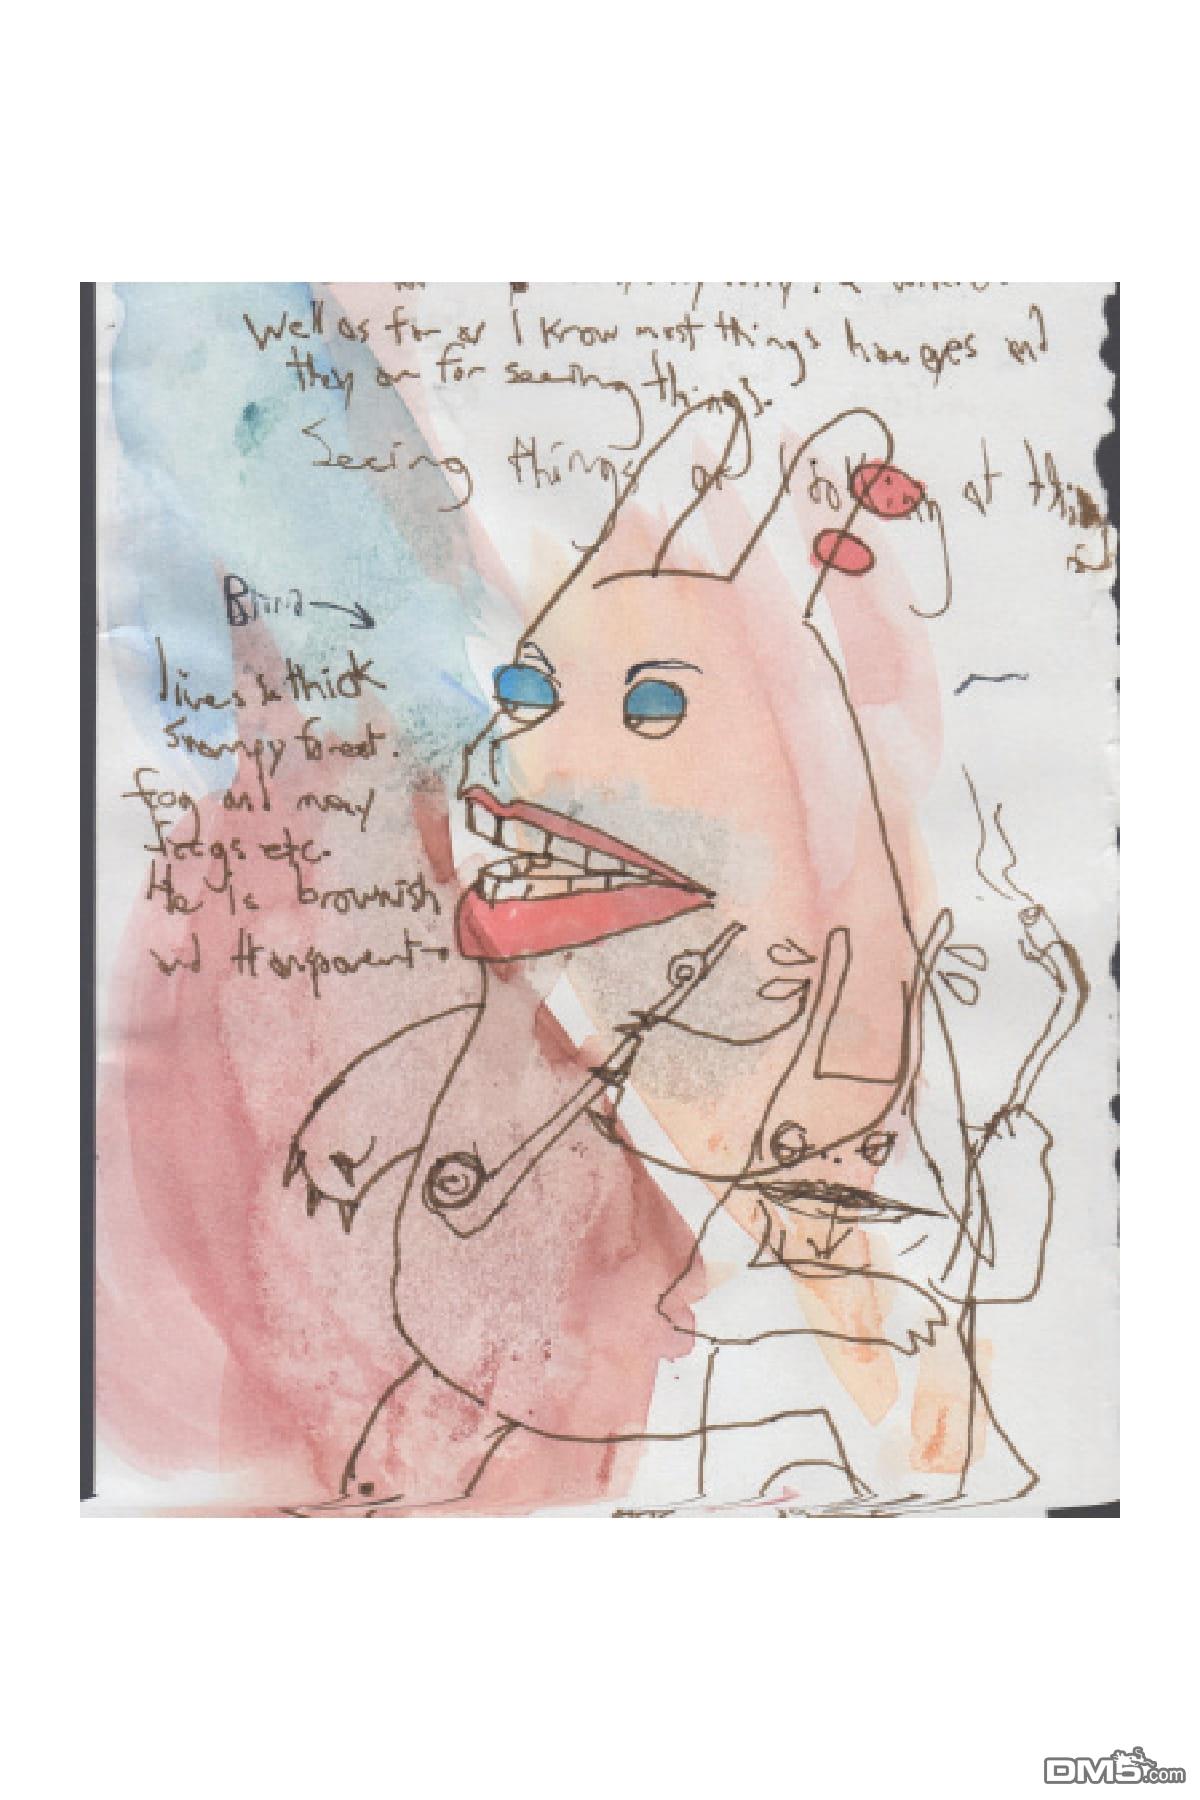 Well as far as I know most things hanges and
they are for seeing things.
Seeing things or looking at things
Blind
lives in thick
swampy forest.
fog and many
frogs etc.
He is brownish
and transparent
DM5.com